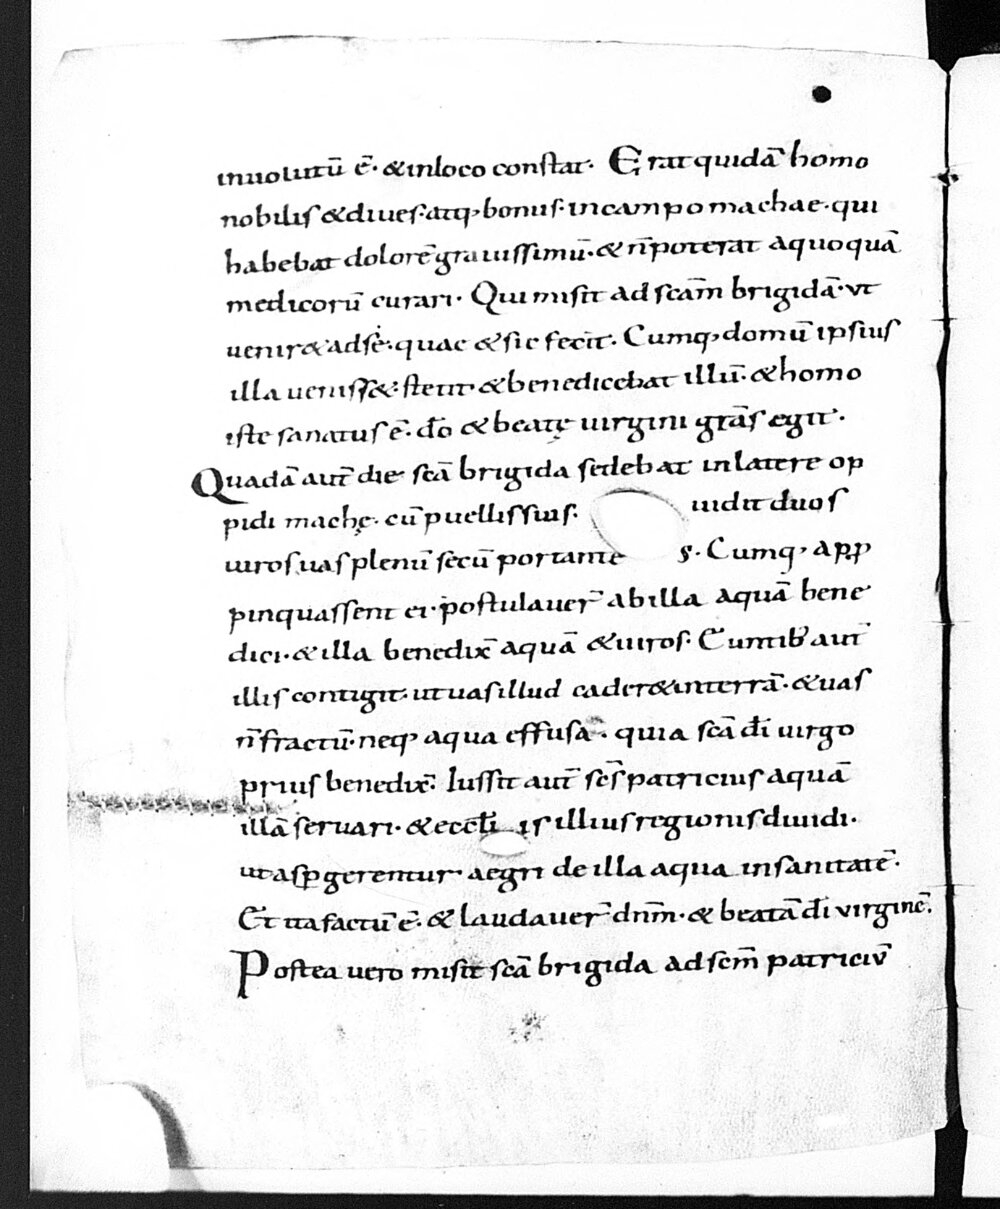 inuolutū ē· &inloco constat· Erat quidā homo
nobilis &diues· atq; bonus· incampo machae· qui
habebat dolorē grauissimū· & n̄ poterat aquoquā
medicorū curari· Qui misit ad scām brigidā· vt
venir& adsė· quae &sic fecit· Cumq; domū ipsius
illa uenisset· stetit &benedicebat illū· &homo
iste sanatus ē· dō &beatę uirgini grās egit·
Quadā aut̄ die scā brigida sedebat inlatere op
pidi machę· cū puellissuis· uidit duos
uiros uas plenū secū portante s· Cumq; app
pinquassent ei· postulauer̄ abilla aquā bene
dici· &illa benedix̄ aquā &uiros· Euntib; aut̄
illis contigit· utuasillud cader& interrā· &uas
n̄ fractū· neq; aqua effusa· quia scā dī uirgo
prius benedix̄· Iussit aut̄ scs̄ patricius aquā
illā seruari· &eccłi is illius regionis diuidi·
utasꝑgerentur aegri de illa aqua insanitatē·
Et ita factū ē· & laudauer̄ dnm̄· & beatā dī virginē·
Postea uero misit scā brigida ad scm̄ patriciū